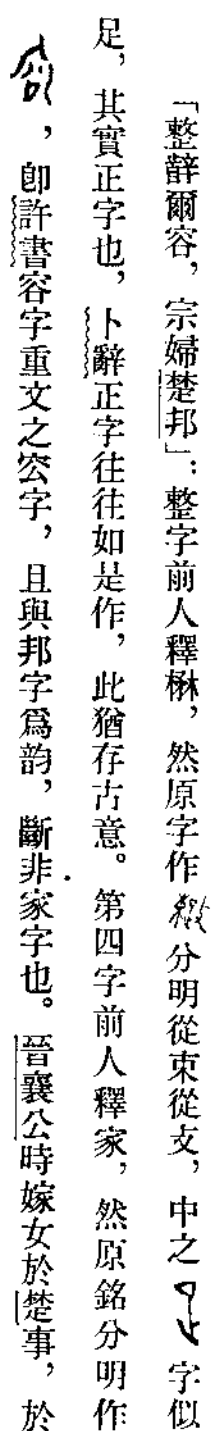 「整辥爾容，宗婦楚邦」：整字前人釋楙，然原字作分明從束從攴，中之字似
足，其實正字也，卜辭正字往往如是作，此猶存古意。第四字前人釋家，然原銘分明作
，卽許書容字重文之㝐字，且與邦字爲韵，斷非家字也。晉襄公時嫁女於楚事，於